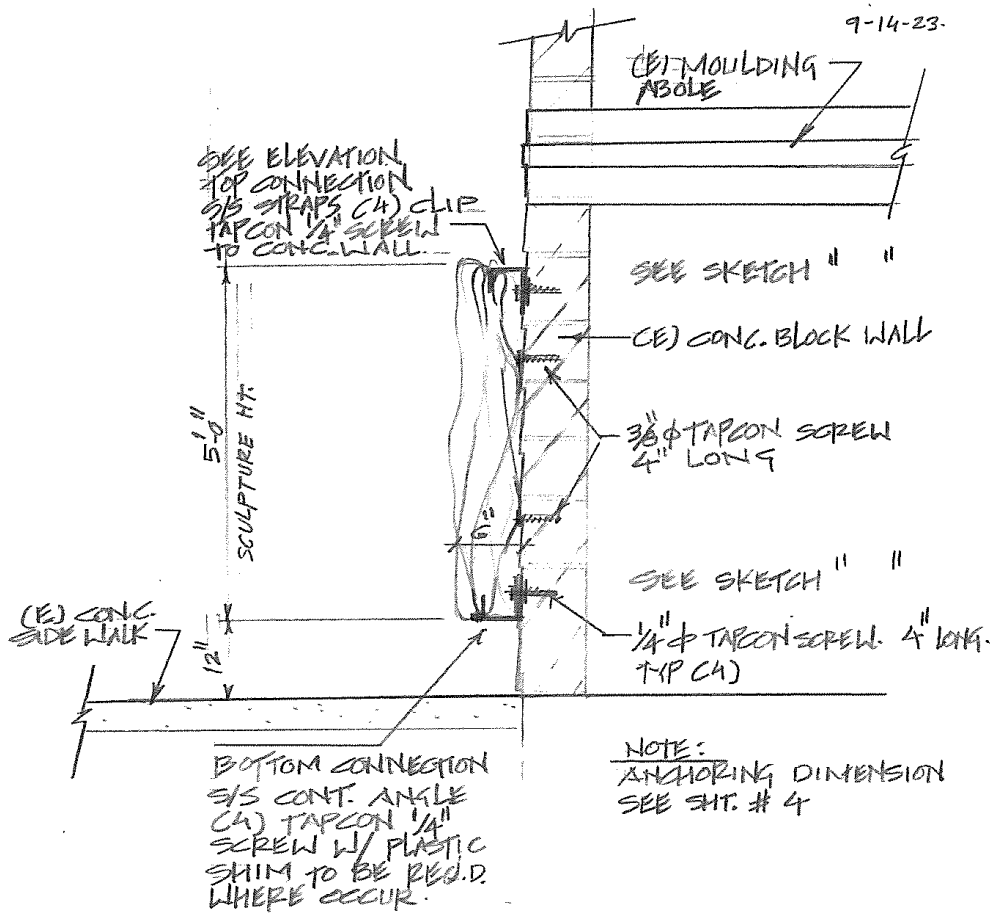 9-14-23.
(E) MOULDING
ABOLE
SEE ELEVATION
TOP CONNECTION
S/S STRAPS (4) CLIP
TAPCON 1/4" SCREW
TO CONC. WALL.
SEE SKETCH " "
(E) CONC. BLOCK WALL
5'-0"
SCULPTURE HT.
3/8" φ TAPCON SCREW
4" LONG
6"
SEE SKETCH " "
(E) CONC.
SIDE WALK
12"
1/4" φ TAPCON SCREW. 4" LONG.
TYP (4)
BOTTOM CONNECTION
S/S CONT. ANGLE
(4) TAPCON 1/4"
SCREW W/ PLASTIC
SHIM TO BE REQ.D.
WHERE OCCUR.
NOTE:
ANCHORING DIMENSION
SEE SHT. # 4